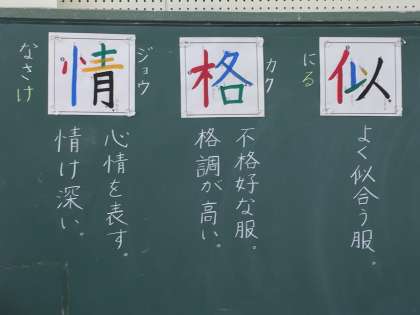 似
にる
よく似合う服。
格
カク
不格好な服。
格調が高い。
情
ジョウ
なさけ
心情を表す。
情け深い。